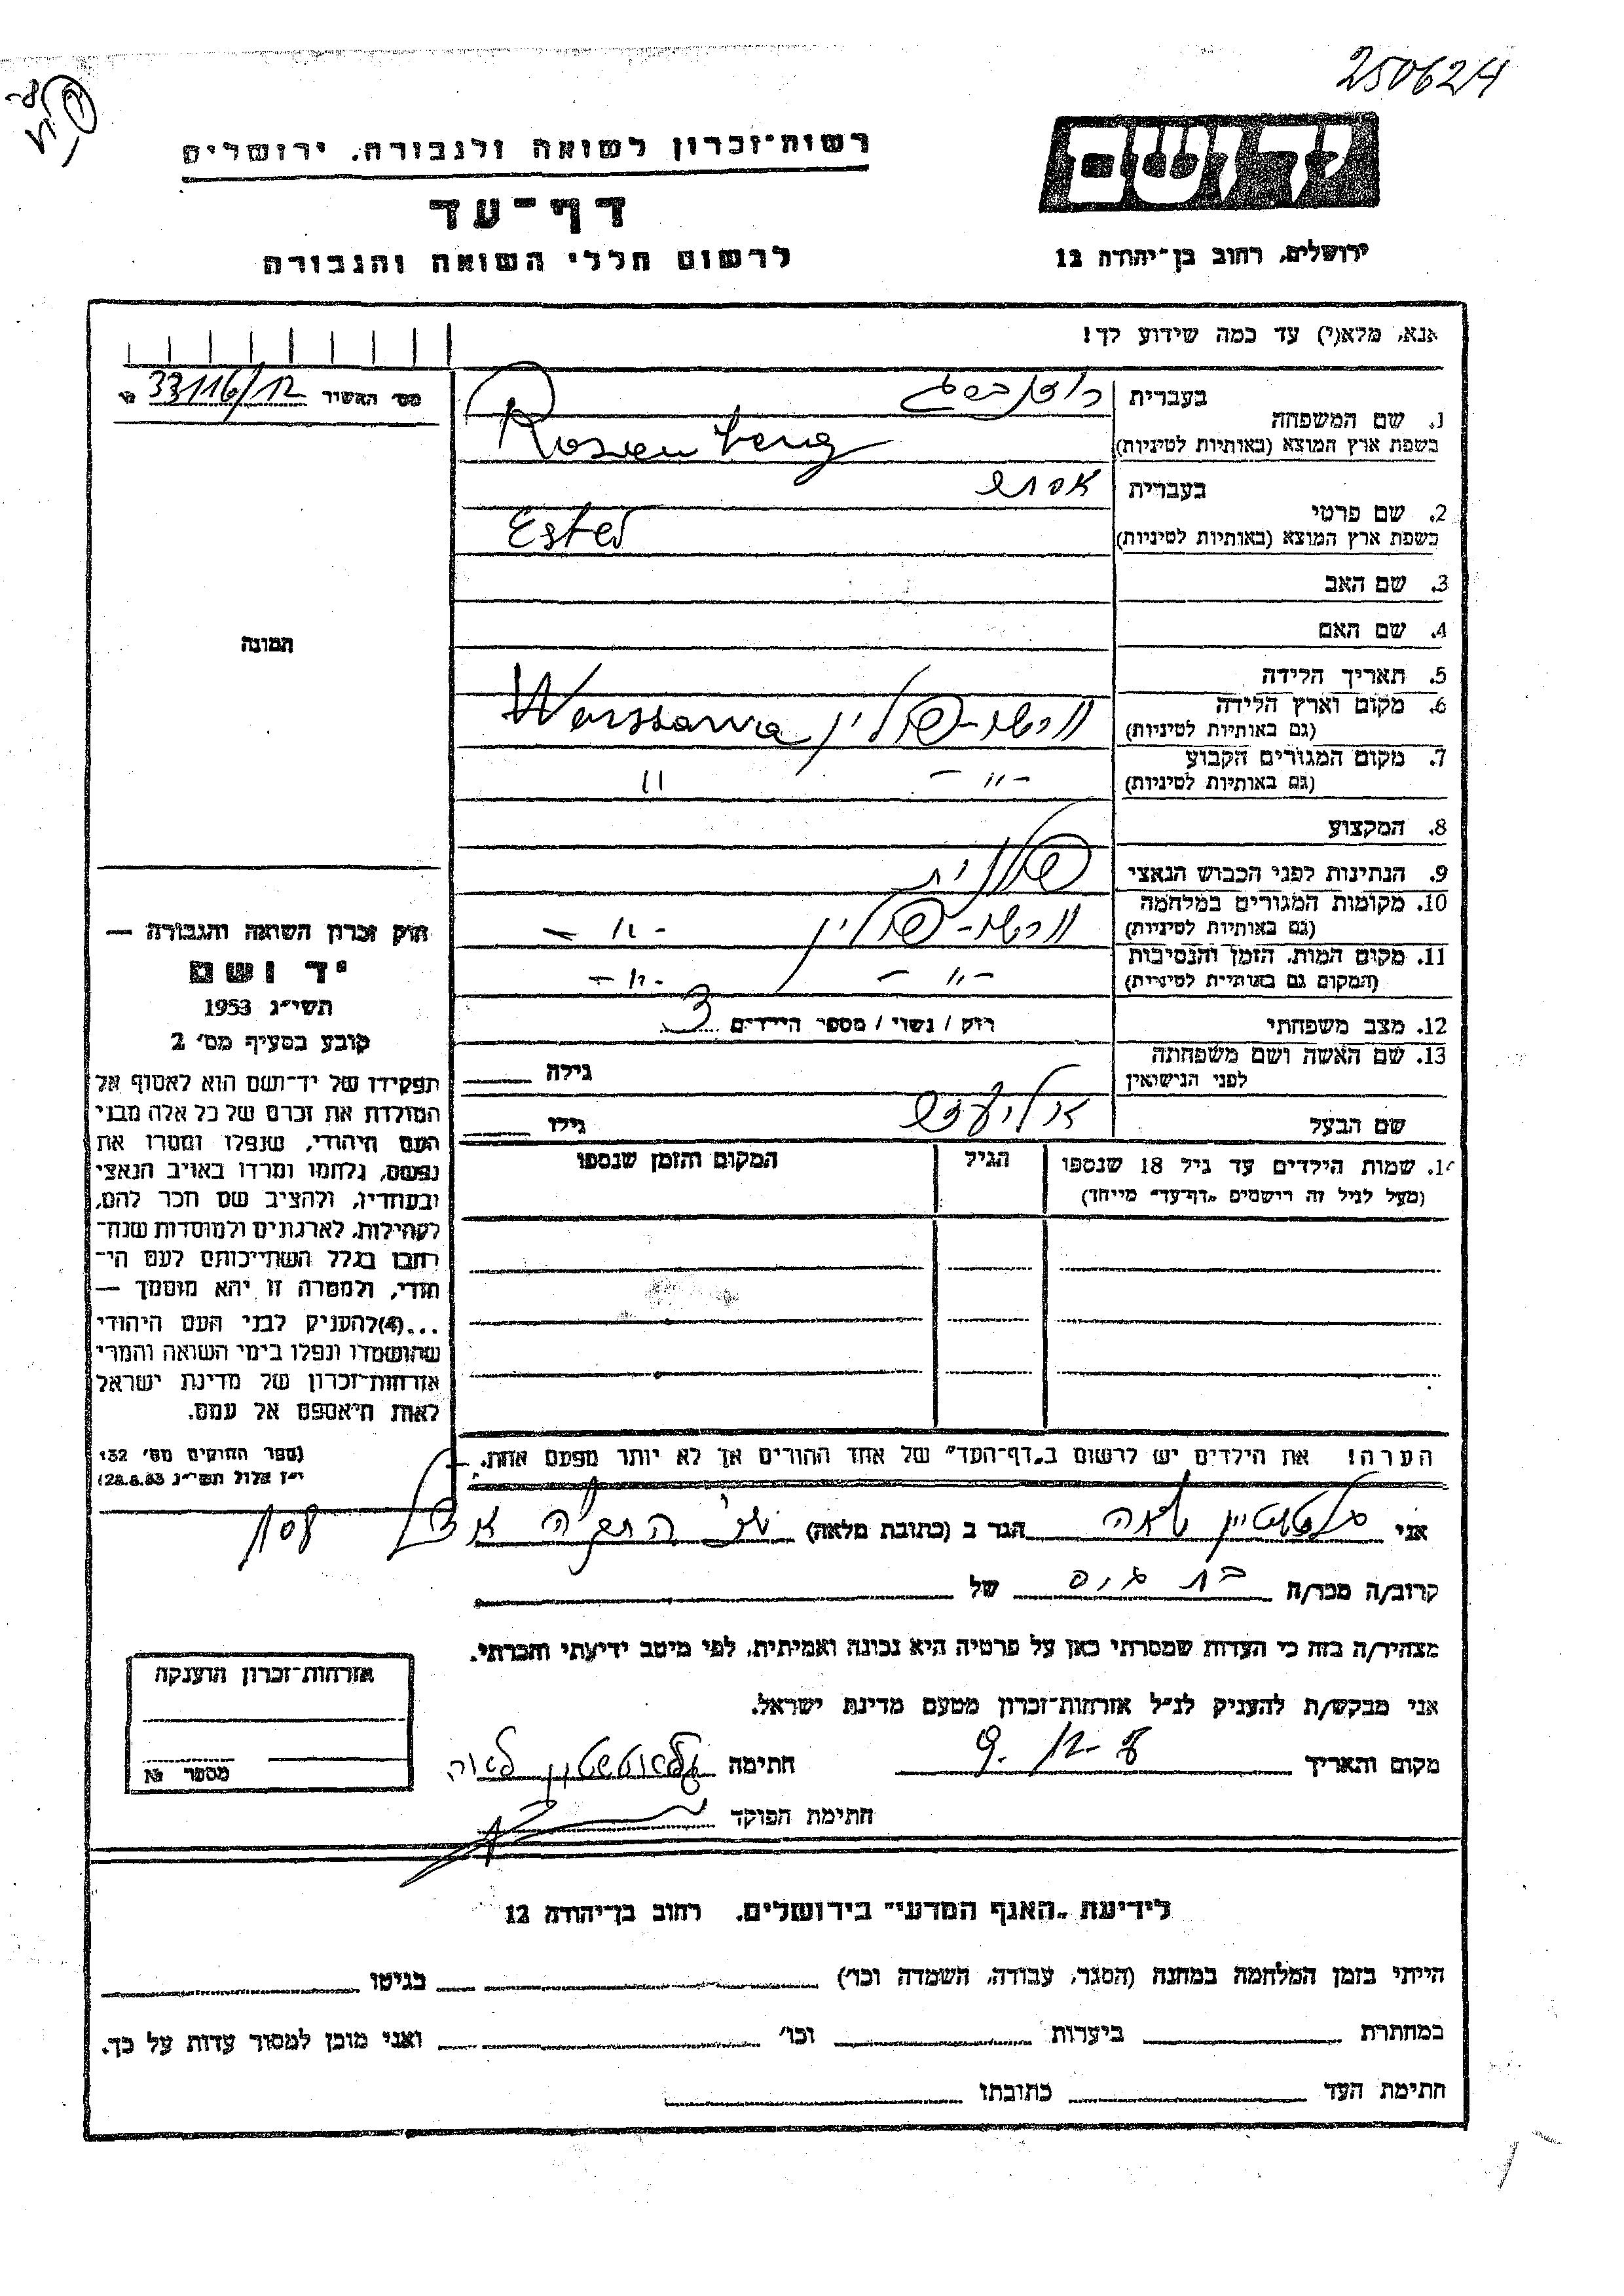 250624
רשות־זכרון לשואה ולגבורה. ירושלים
דף־עד
לרשום חללי השואה והגבורה
יד ושם
ירושלים, רחוב בן־יהודה 12
אנא, מלא(י) עד כמה שידוע לך!
מס׳ האשיר № 33116/12
1. שם המשפחה
בעברית רוזנברג
בשפת ארץ המוצא (באותיות לטיניות) Rosenberg
2. שם פרטי
בעברית אסתר
בשפת ארץ המוצא (באותיות לטיניות) Ester
3. שם האב
4. שם האם
תמונה
5. תאריך הלידה
6. מקום וארץ הלידה ורשה-פולין Warszawa
(גם באותיות לטיניות)
7. מקום המגורים הקבוע -"- "
(גם באותיות לטיניות)
8. המקצוע
9. הנתינות לפני הכבוש הנאצי פולנית
10. מקומות המגורים במלחמה ורשה-פולין -"-
(גם באותיות לטיניות)
11. מקום המות, הזמן והנסיבות -"- -"-
(המקום גם באותיות לטיניות)
12. מצב משפחתי רוק / נשוי / מספר הילדים 3
13. שם האשה ושם משפחתה גילה
לפני הנישואין
שם הבעל אליעזר גילו
14. שמות הילדים עד גיל 18 שנספו הגיל המקום והזמן שנספו
(מעל לגיל זה רישמים „דף־עד״ מייחד)
חוק זכרון השואה והגבורה —
יד ושם
תשי״ג 1953
קובע בסעיף מס׳ 2
תפקידו של יד־ושם הוא לאסוף אל
המולדת את זכרם של כל אלה מבני
העם היהודי, שנפלו ומסרו את
נפשם, נלחמו ומרדו באויב הנאצי
ובעוזריו, ולהציב שם וזכר להם,
לקהילות, לארגונים ולמוסדות שנח־
רבו בגלל השתייכותם לעם הי־
הודי, ולמטרה זו יהא מוסמך —
...(4)להעניק לבני העם היהודי
שהושמדו ונפלו בימי השואה והמרי
אזרחות־זכרון של מדינת ישראל
לאות היאספם אל עמם.
(ספר החוקים מס׳ 132
י״ז אלול תשי״ג 28.8.53)
הערה! את הילדים יש לרשום ב„דף־העד״ של אחד ההורים אך לא יותר מפעם אחת.
אני לאה הגר ב (כתובת מלאה)
קרוב/ה מכר/ה בת גיס של
מצהיר/ה בזה כי העדות שמסרתי כאן על פרטיה היא נכונה ואמיתית, לפי מיטב ידיעתי והכרתי.
אני מבקש/ת להעניק לנ״ל אזרחות־זכרון מטעם מדינת ישראל.
מקום והתאריך חתימה לאה
חתימת הפוקד
אזרחות־זכרון הוענקה
מספר №
לידיעת „האגף המדעי״ בירושלים. רחוב בן־יהודה 12
הייתי בזמן המלחמה במחנה (הסגר, עבודה, השמדה וכו׳) בגיטו
במחתרת ביערות וכו׳ ואני מוכן למסור עדות על כך.
חתימת העד כתובתו